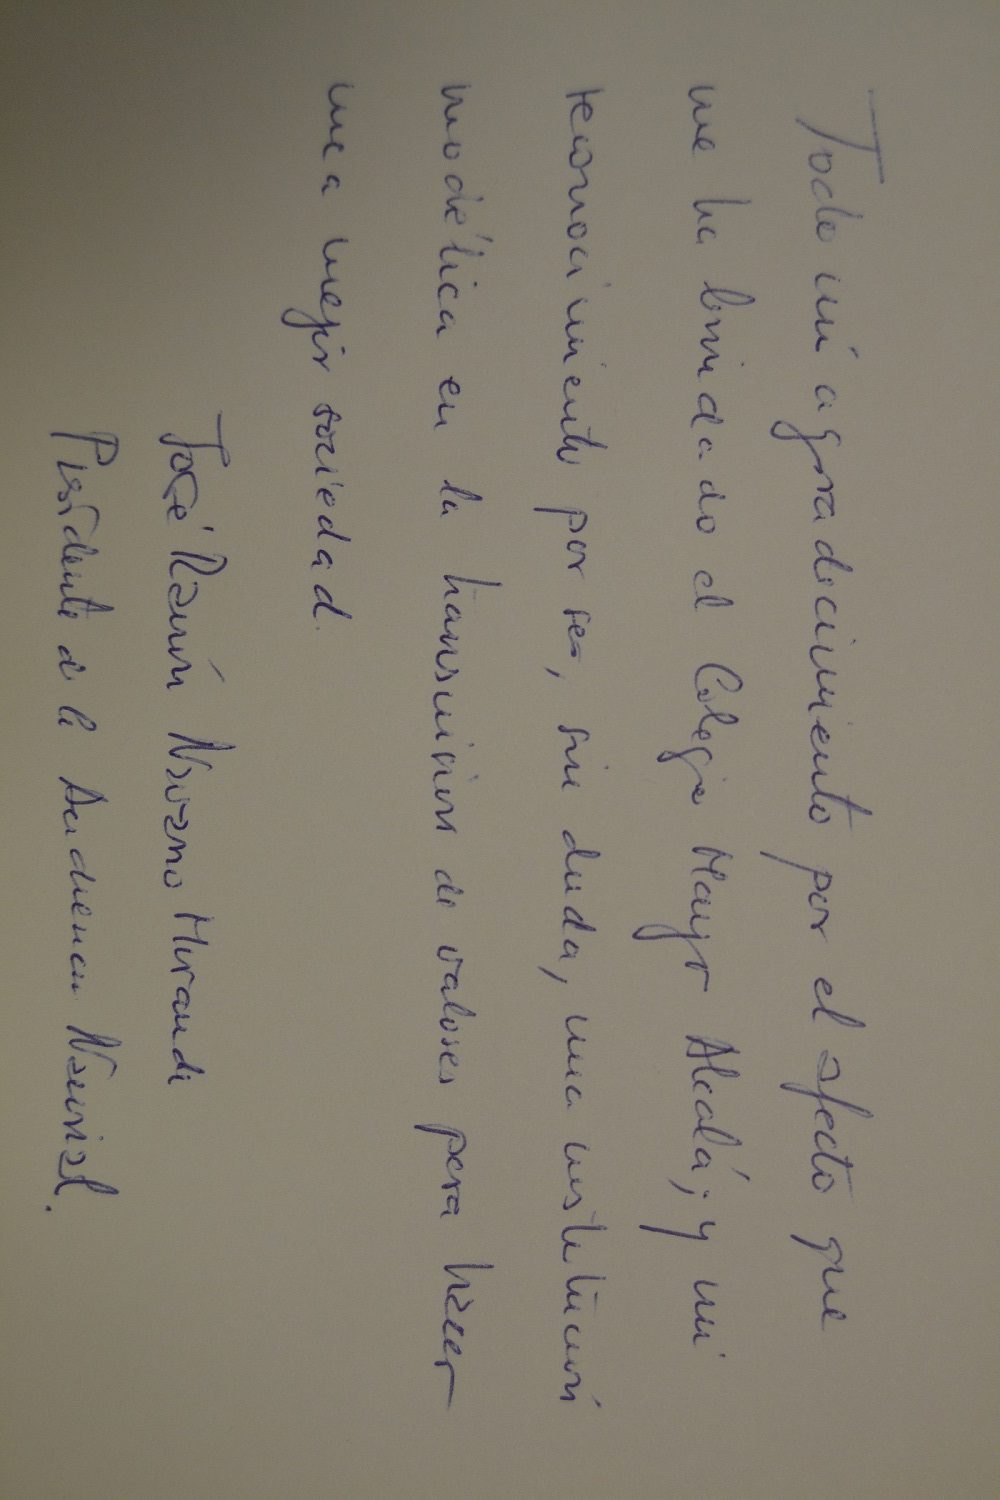 Todo mi agradecimiento por el afecto que
me ha brindado el Colegio Mayor Alcalá; y mi
reconocimiento por ser, sin duda, una institución
modélica en la transmisión de valores para hacer
una mejor sociedad.
José Ramón Navarro Miranda
Presidente de la Audiencia Nacional.